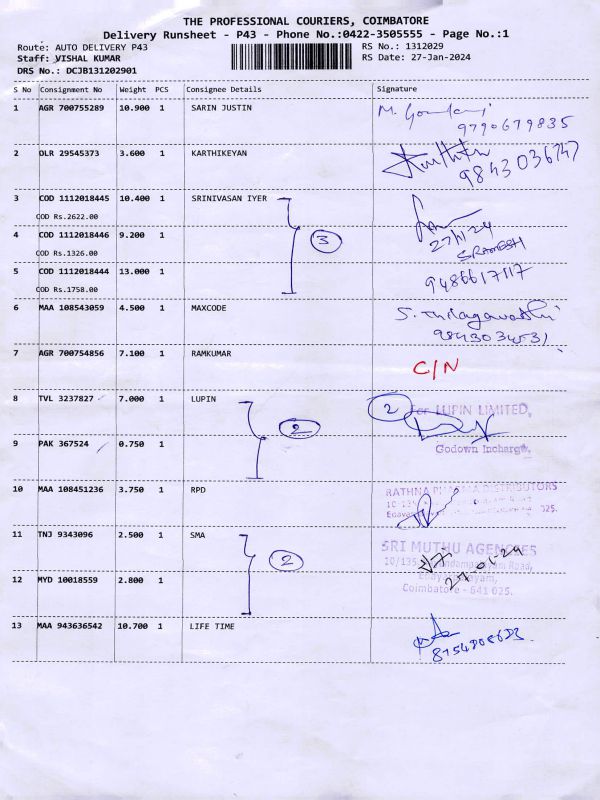 THE PROFESSIONAL COURIERS, COIMBATORE
Delivery Runsheet - P43 - Phone No.:0422-3505555 - Page No.:1
Route: AUTO DELIVERY P43 RS No.: 1312029
Staff: VISHAL KUMAR RS Date: 27-Jan-2024
DRS No.: DCJB131202901
S No Consignment No Weight PCS Consignee Details Signature
1 AGR 700755289 10.900 1 SARIN JUSTIN M.
9790679835
2 OLR 29545373 3.600 1 KARTHIKEYAN Karthik
9843036747
3 COD 1112018445 10.400 1 SRINIVASAN IYER
COD Rs.2622.00
4 COD 1112018446 9.200 1 3 27/1/24
COD Rs.1326.00 S RAMESH
5 COD 1112018444 13.000 1 9486617117
COD Rs.1758.00
6 MAA 108543059 4.500 1 MAXCODE S.
9843034531
7 AGR 700754856 7.100 1 RAMKUMAR C/N
8 TVL 3237827 7.000 1 LUPIN 2 For LUPIN LIMITED,
2
9 PAK 367524 0.750 1 Godown Incharge.
10 MAA 108451236 3.750 1 RPD RATHNA PHARMA DISTRIBUTORS
025.
11 TNJ 9343096 2.500 1 SMA SRI MUTHU AGENCIES
2 10/135, Road,
24-01-24
12 MYD 10018559 2.800 1
Coimbatore - 641 025.
13 MAA 943636542 10.700 1 LIFE TIME